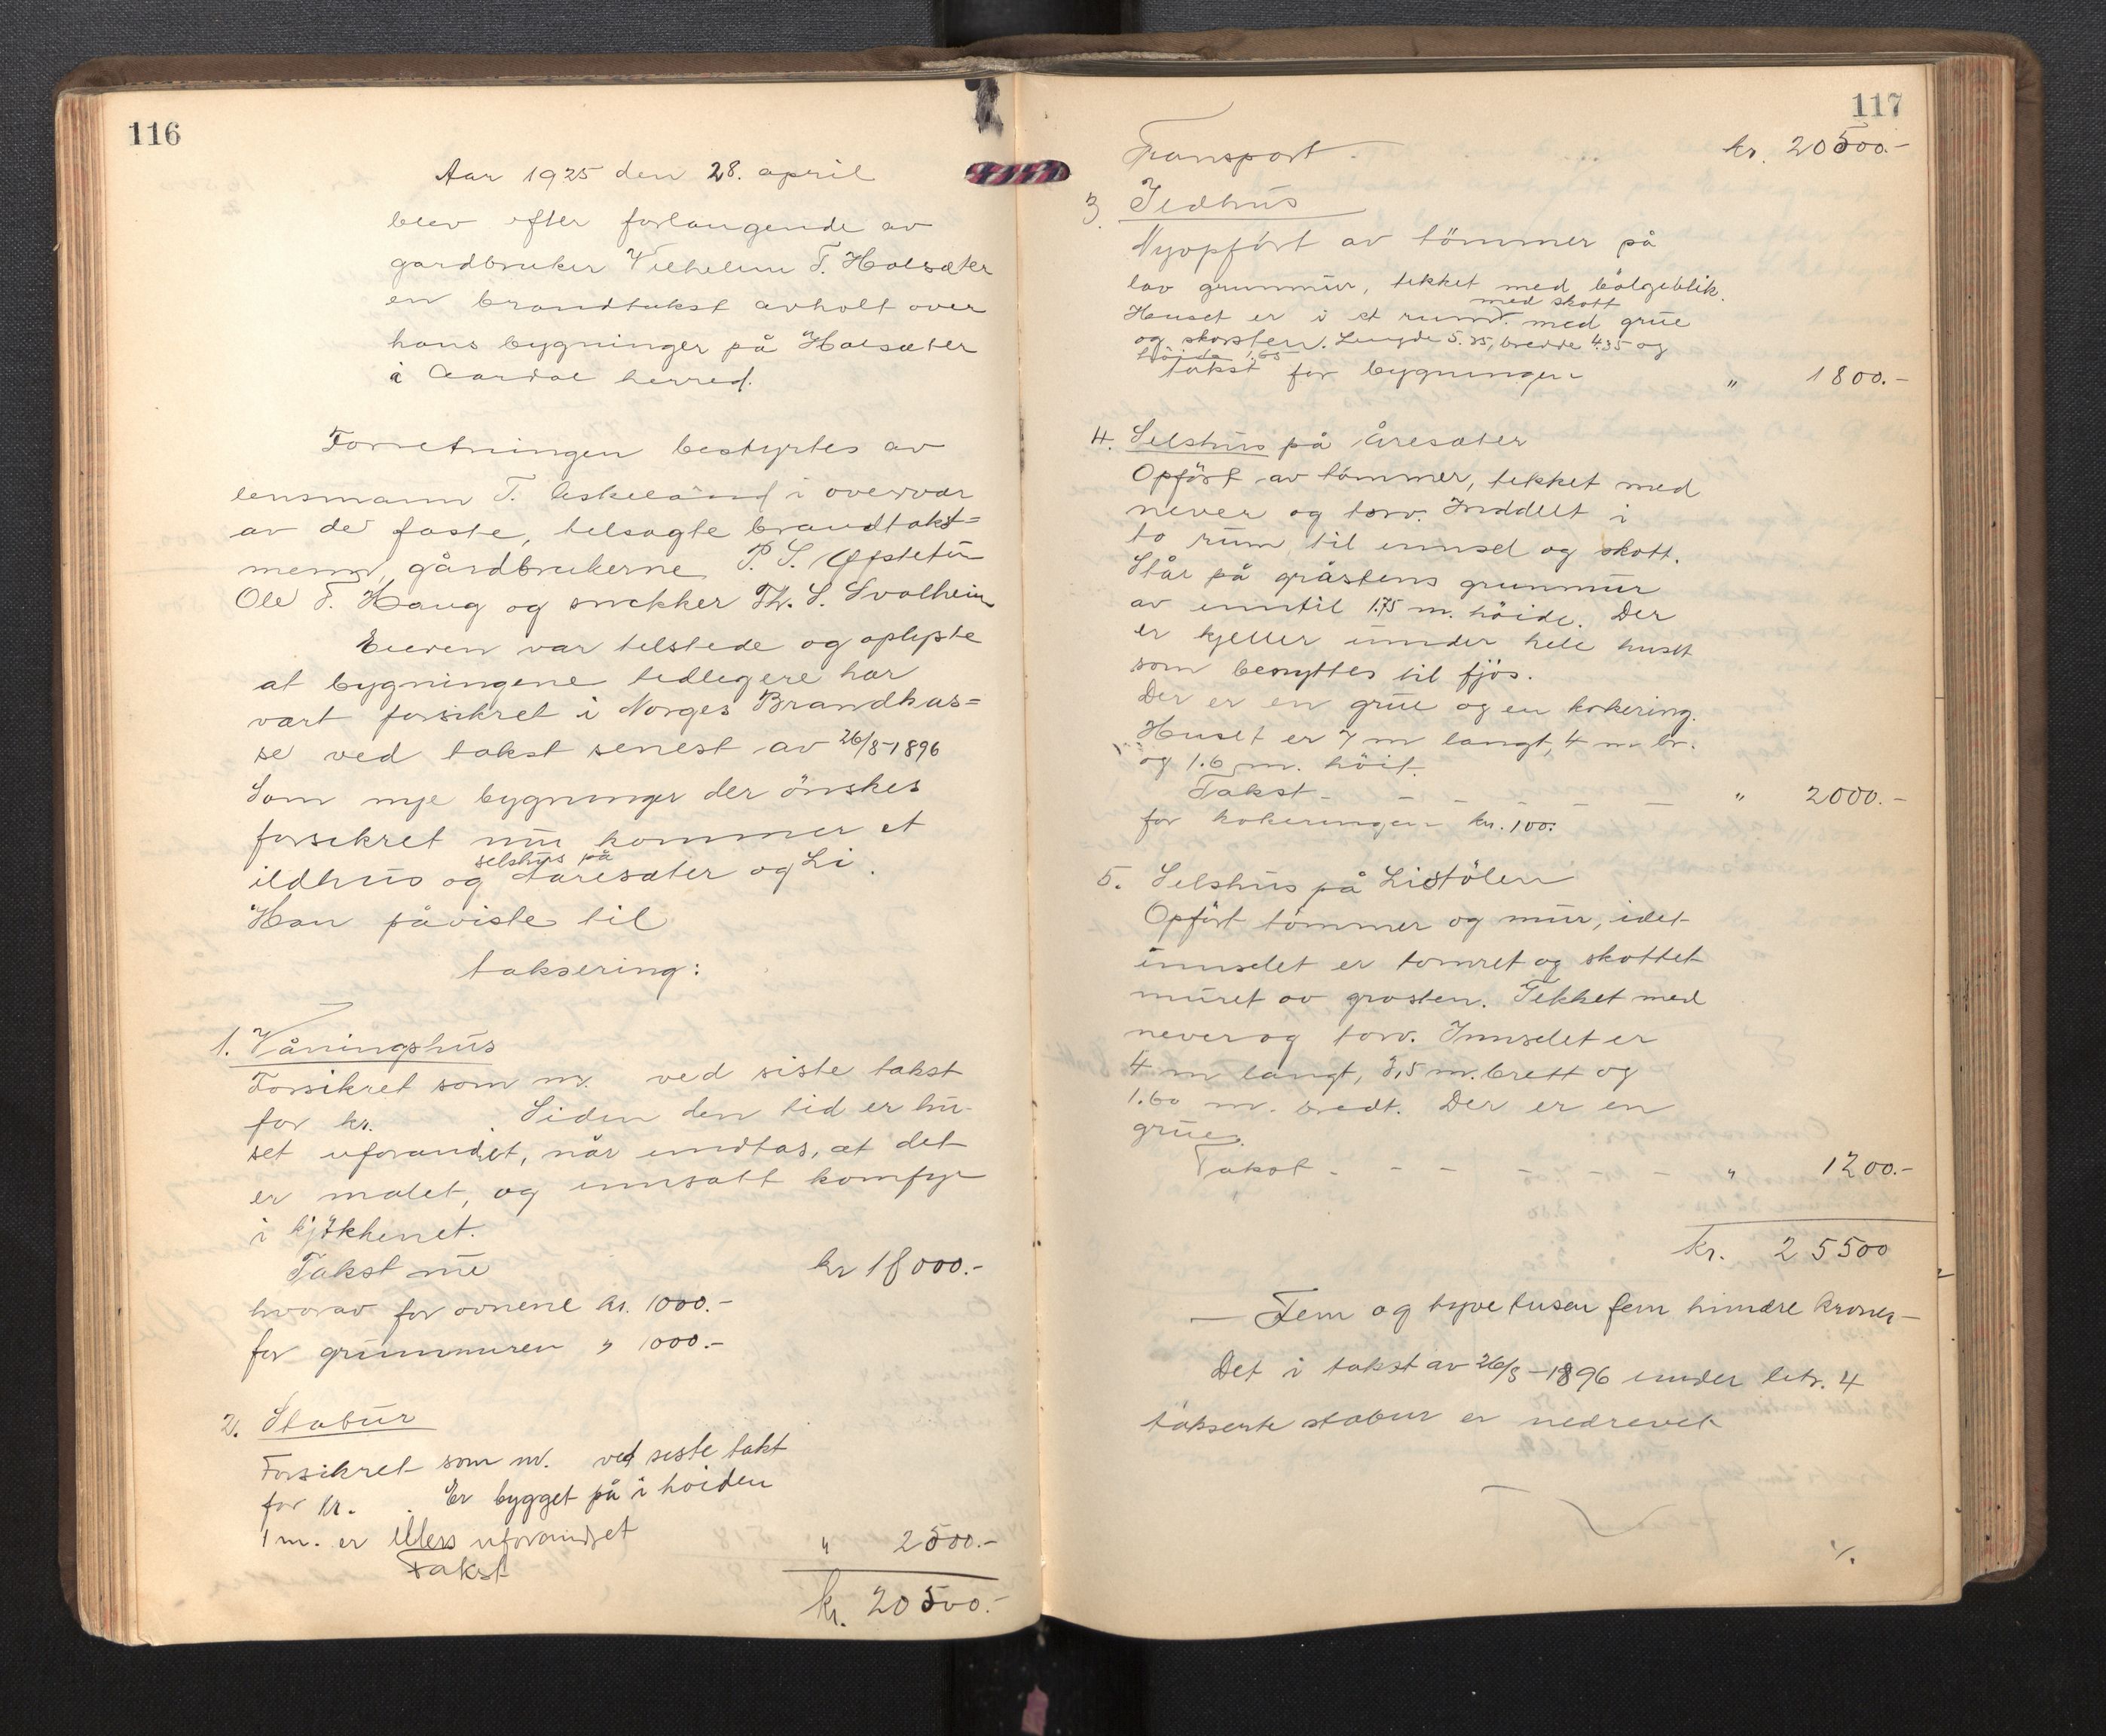 116
Aar 1925 den 28. april
blev efter forlangende av
gardbruker Vilhelm T. Holsæter
en brandtakst avholt over
hans bygninger på Holsæter
i Aardal herred.
Forretningen bestyrtes av
lensmann T. Eskeland i overvær
av de faste, tilsagte brandtakst=
menn, gårdbrukerne P. S. Øfstetun
Ole T. Haug og snekker Th. S. Svalheim
Eieren var tilstede og oplyste
at bygningene tidligere har
vært forsikret i Norges Brandkas=
se ved takst senest av 26/8-1896
Som nye bygninger der önskes
forsikret nu kommer et
ildhus og selshus på Aaresæter og Li.
Han påviste til
taksering:
1. Våningshus
Forsikret som nr. ved siste takst
for kr. Siden den tid er hu-
set uforandret, når undtas, at det
er malet, og innsatt komfyr
i kjökkenet.
Takst nu kr 18000.-
hvorav for ovnene kr. 1000.-
for grunnmuren " 1000.-
2. Stabur
Forsikret som nr. ved siste takt
for kr. . Er bygget på i höiden
1 m. er ellers uforandret
Takst " 2500.-
kr. 20500.-
117
Transport kr. 20500.-
3. Ildhus
Nyopfört av tömmer på
lav grunnmur, tekket med bölgeblik.
Huset er i et rum med skott med grue
og skorsten. Lengde 5.35, bredde 4.35 og
höide 1.65
takst for bygningen " 1800.-
4. Selshus på Åresæter
Opfört av tömmer, tekket med
never og torv. Inddelt i
to rum til innsel og skott.
Står på gråstens grunnmur
av inntil 1.75 m. höide. Der
er kjeller under hele huset
som benyttes til fjös.
Der er en grue og en kokering.
Huset er 7 m langt, 4 m br.
og 1.6 m. höit.
Takst - - - - - - " 2000.-
for kokeringen kr. 100:
5. Selshus på Listölen
Opfört tömmer og mur, idet
innselet er tomret og skottet
muret av grosten. Tekket med
never og torv. Innselet er
4 m langt, 3,5 m. brett og
1.60 m. bredt. Der er en
grue.
Takst - - - - - - - " 1200.-
kr. 25500
— Fem og tyve tusen fem hundre kroner —
Det i takst av 26/8-1896 under litr. 4
takserte stabur er nedrevet
./.